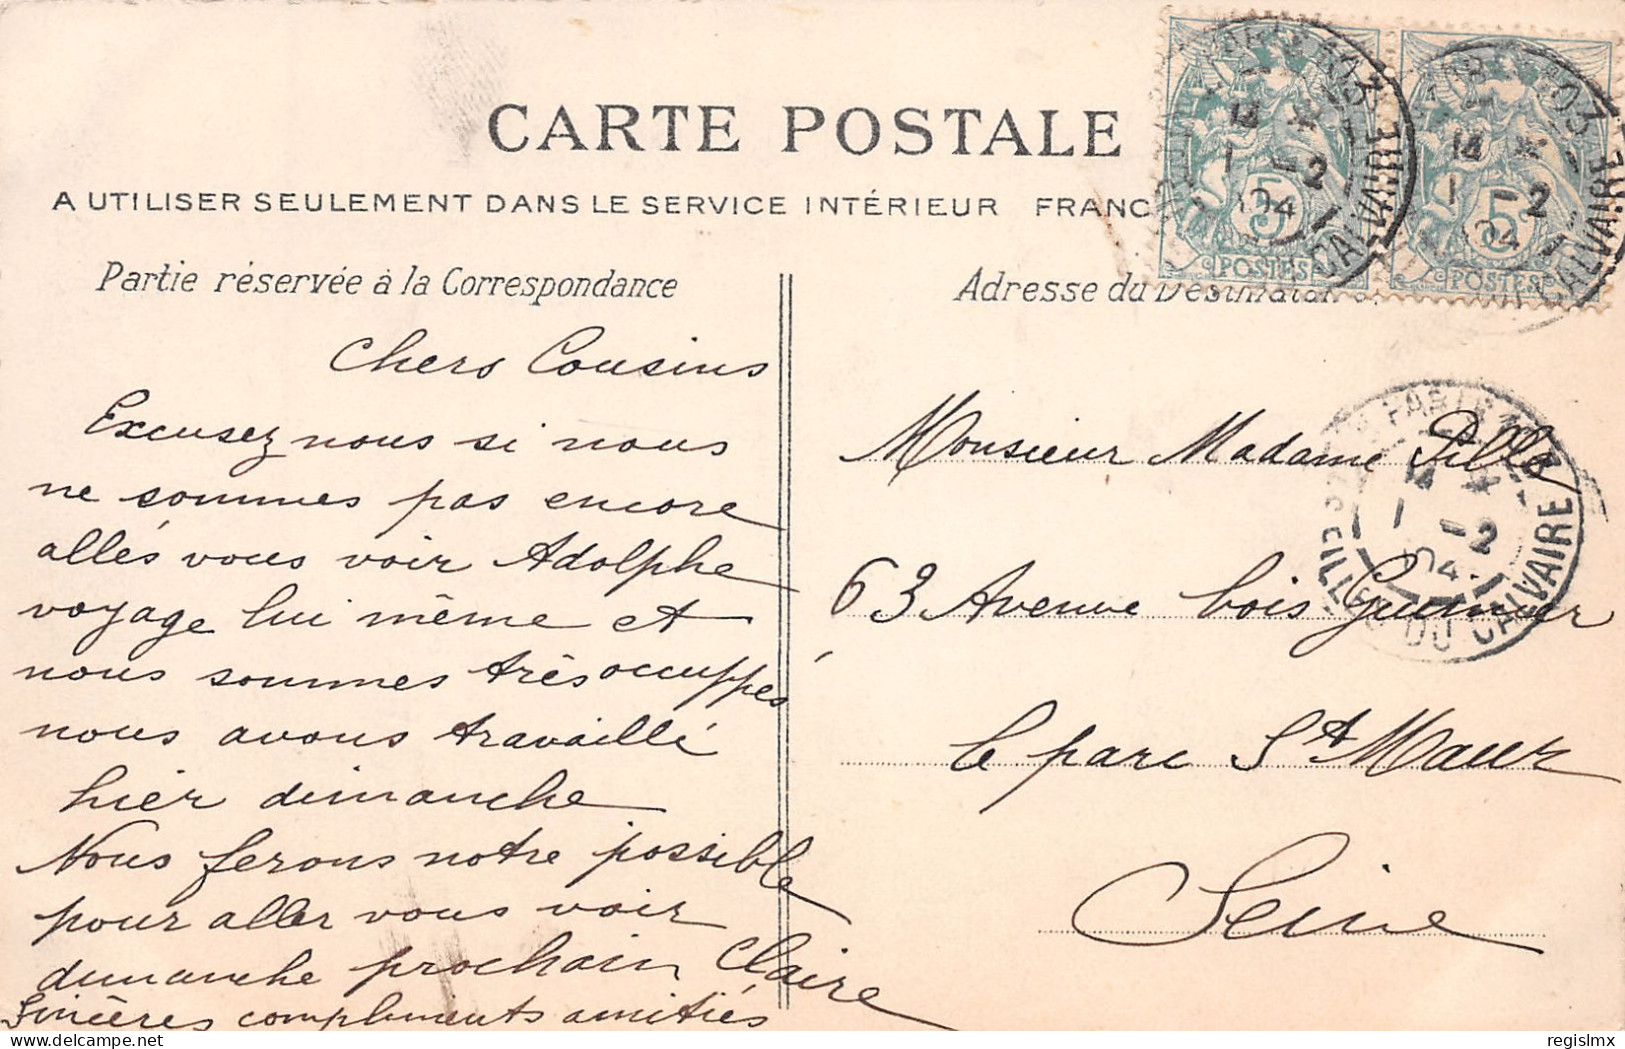 CARTE POSTALE
A UTILISER SEULEMENT DANS LE SERVICE INTÉRIEUR FRANC
Partie réservée à la Correspondance
Chers Cousins
Excusez nous si nous
ne sommes pas encore
allés vous voir Adolphe
voyage lui même et
nous sommes très occuppés
nous avons travaillé
hier dimanche
Nous ferons notre possible
pour aller vous voir
dimanche prochain Claire
Sincères compliments amitiés
Adresse du
Monsieur Madame
63 Avenue bois Guimier
le parc St Maur
Seine
5
POSTES
5
POSTES
14
1 -2
04
CALVAIRE
14
1 -2
04
CALVAIRE
14
1 -2
04
DU CALVAIRE
delcampe.net
regislmx